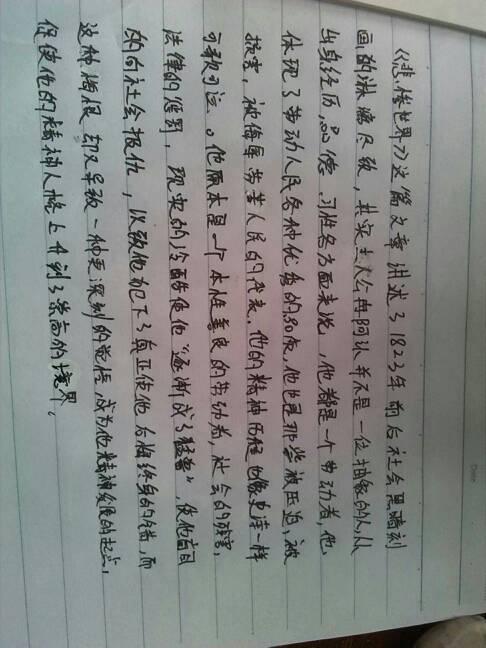 《悲惨世界》这篇文章讲述了1823年前后社会黑暗刻
画的淋漓尽致，其实主人公冉阿让并不是一位抽象的人，从
出身经历、品德、习性各方面来说，他都是一个劳动者，他，
体现了劳动人民各种优秀的品质，他也是那些被压迫，被
损害，被侮辱劳苦人民的代表，他的精神历程也像史诗一样
可歌可泣。他原本是一个本性善良的劳动者，社会的残害，
法律的惩罚，现实的冷酷使他“逐渐成了猛兽”，使他盲目
的向社会报仇，以致他犯下了真正使他后悔终身的错，而
这种悔恨却又导致一种更深刻的觉悟，成为他精神发展的起点，
促使他的精神人格上升到了崇高的境界。
Date